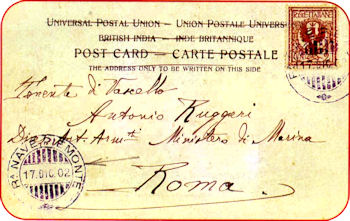 UNIVERSAL POSTAL UNION – UNION POSTALE UNIVERS
BRITISH INDIA – INDE BRITANNIQUE
POST CARD – CARTE POSTALE
THE ADDRESS ONLY TO BE WRITTEN ON THIS SIDE
POSTE ITALIANE
Tenente di Vascello
Antonio Ruggeri
Art. Arm.ti Ministero di Marina
Roma
Rª NAVE PIEMONTE
17.DIC.02